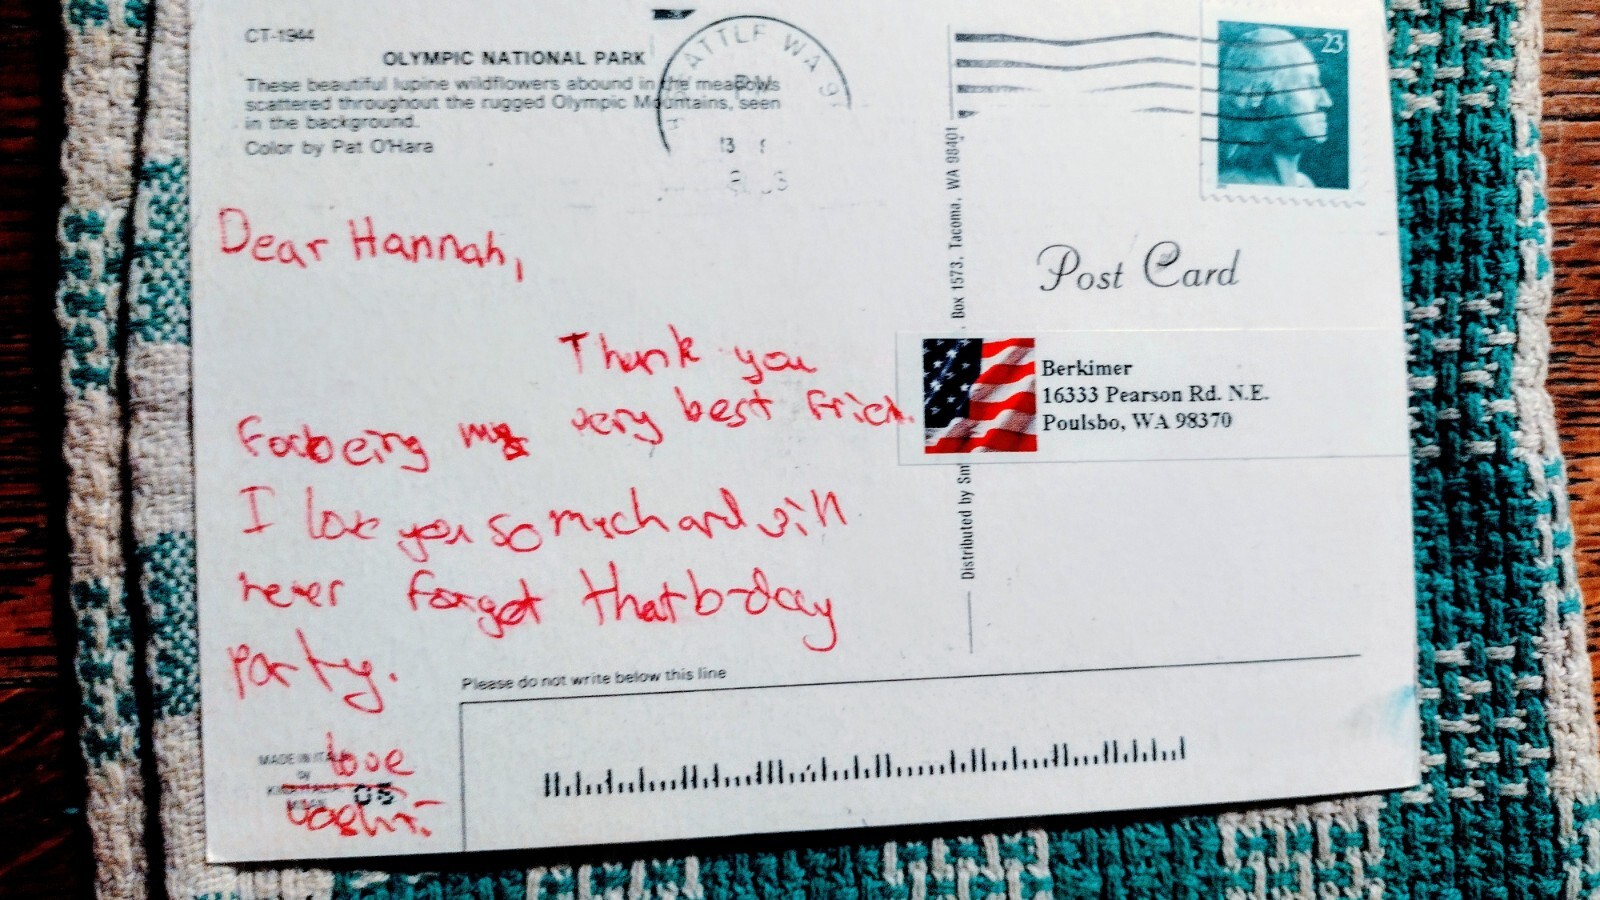 CT-1944
OLYMPIC NATIONAL PARK
These beautiful lupine wildflowers abound in the meadows
scattered throughout the rugged Olympic Mountains, seen
in the background.
Color by Pat O'Hara
ATTLE WA 9
PM
13
23
Dear Hannah,
Thank you
for being my very best frien.
I love you so much and will
never forget that b-day
party.
love
Post Card
Berkimer
16333 Pearson Rd. N.E.
Poulsbo, WA 98370
Distributed by Sm
, Box 1573, Tacoma, WA 98401
Please do not write below this line
MADE IN ITAL
by
05